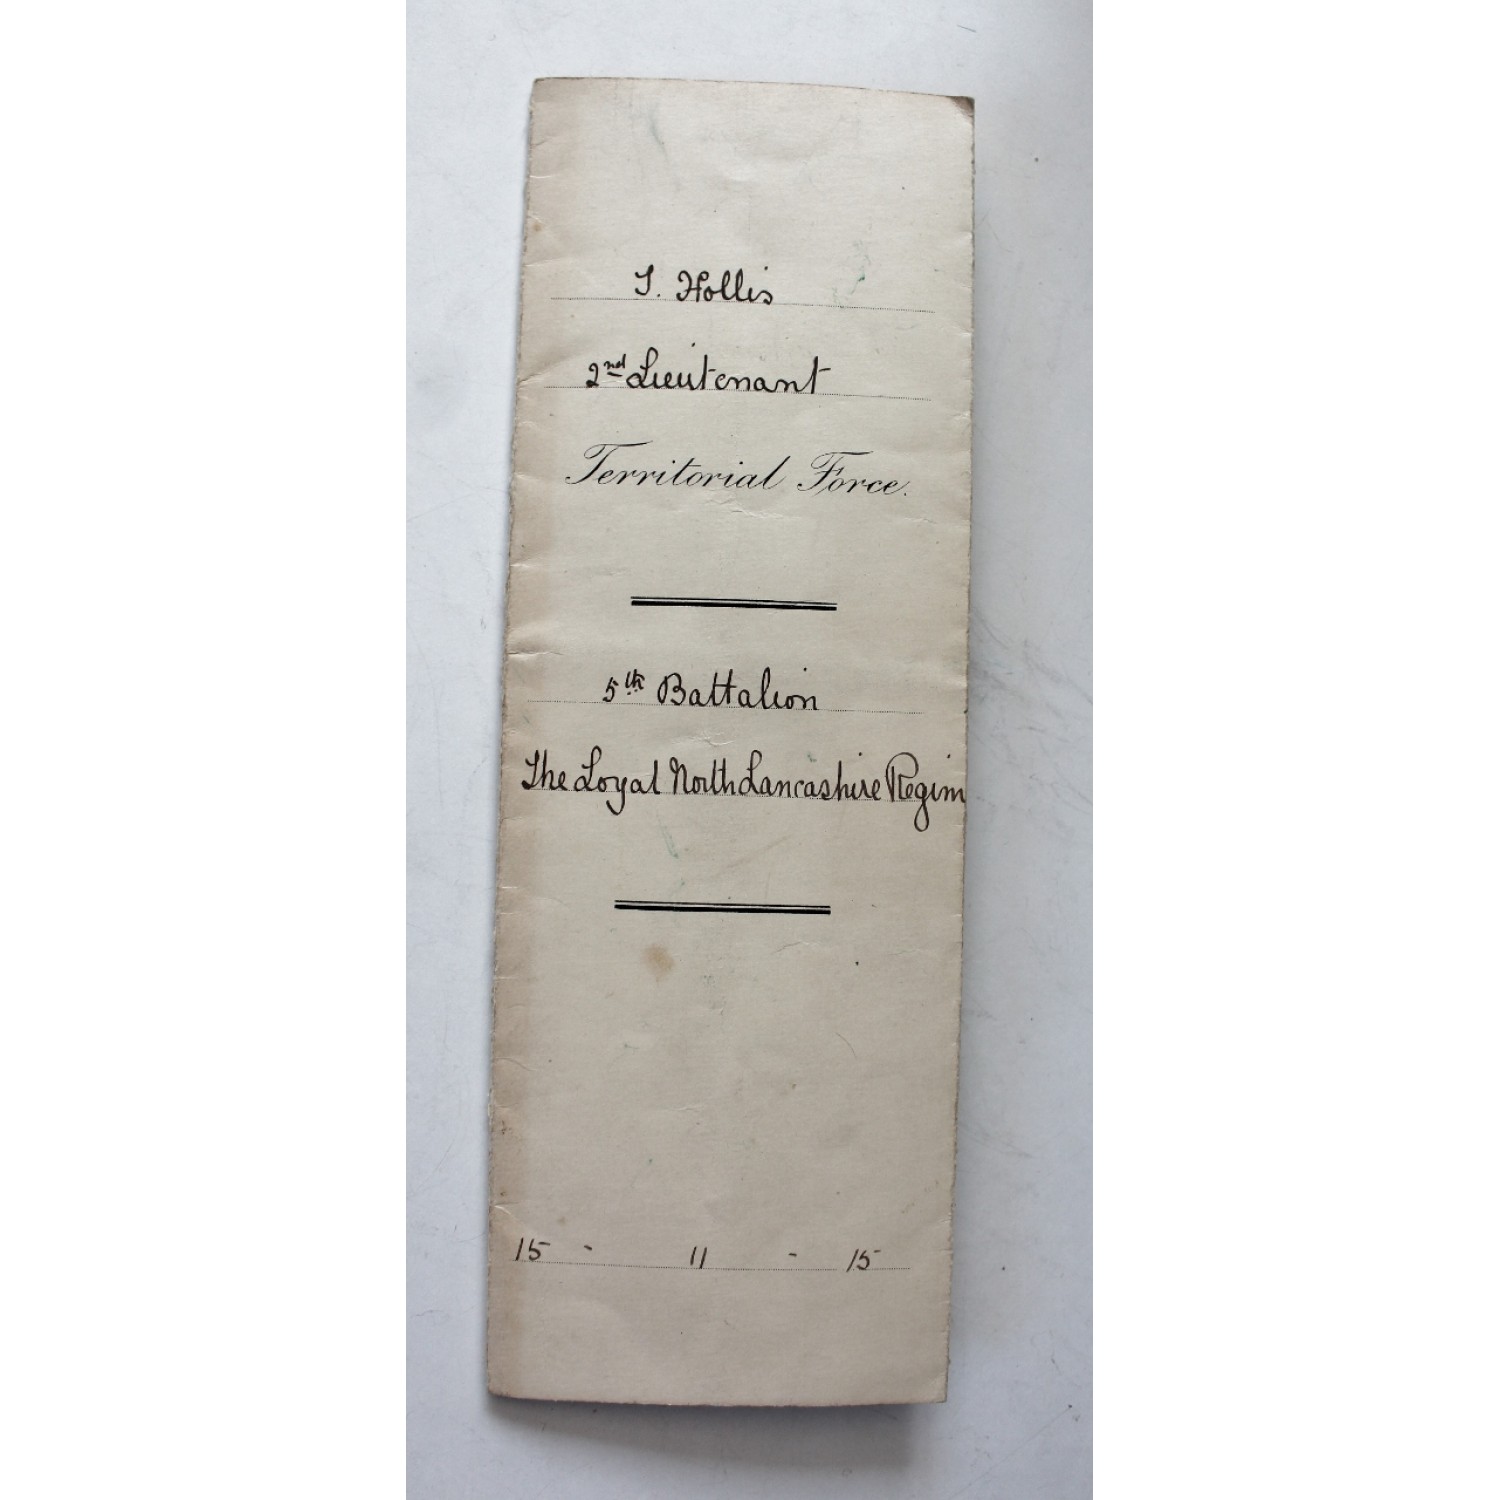 T. Hollis
2nd Lieutenant
Territorial Force.
5th Battalion
The Loyal North Lancashire Regim
15 - 11 - 15